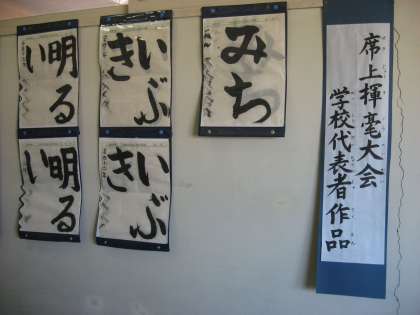 席上揮毫大会
学校代表者作品
みち
いぶ
き
いぶ
き
明る
い
明る
い